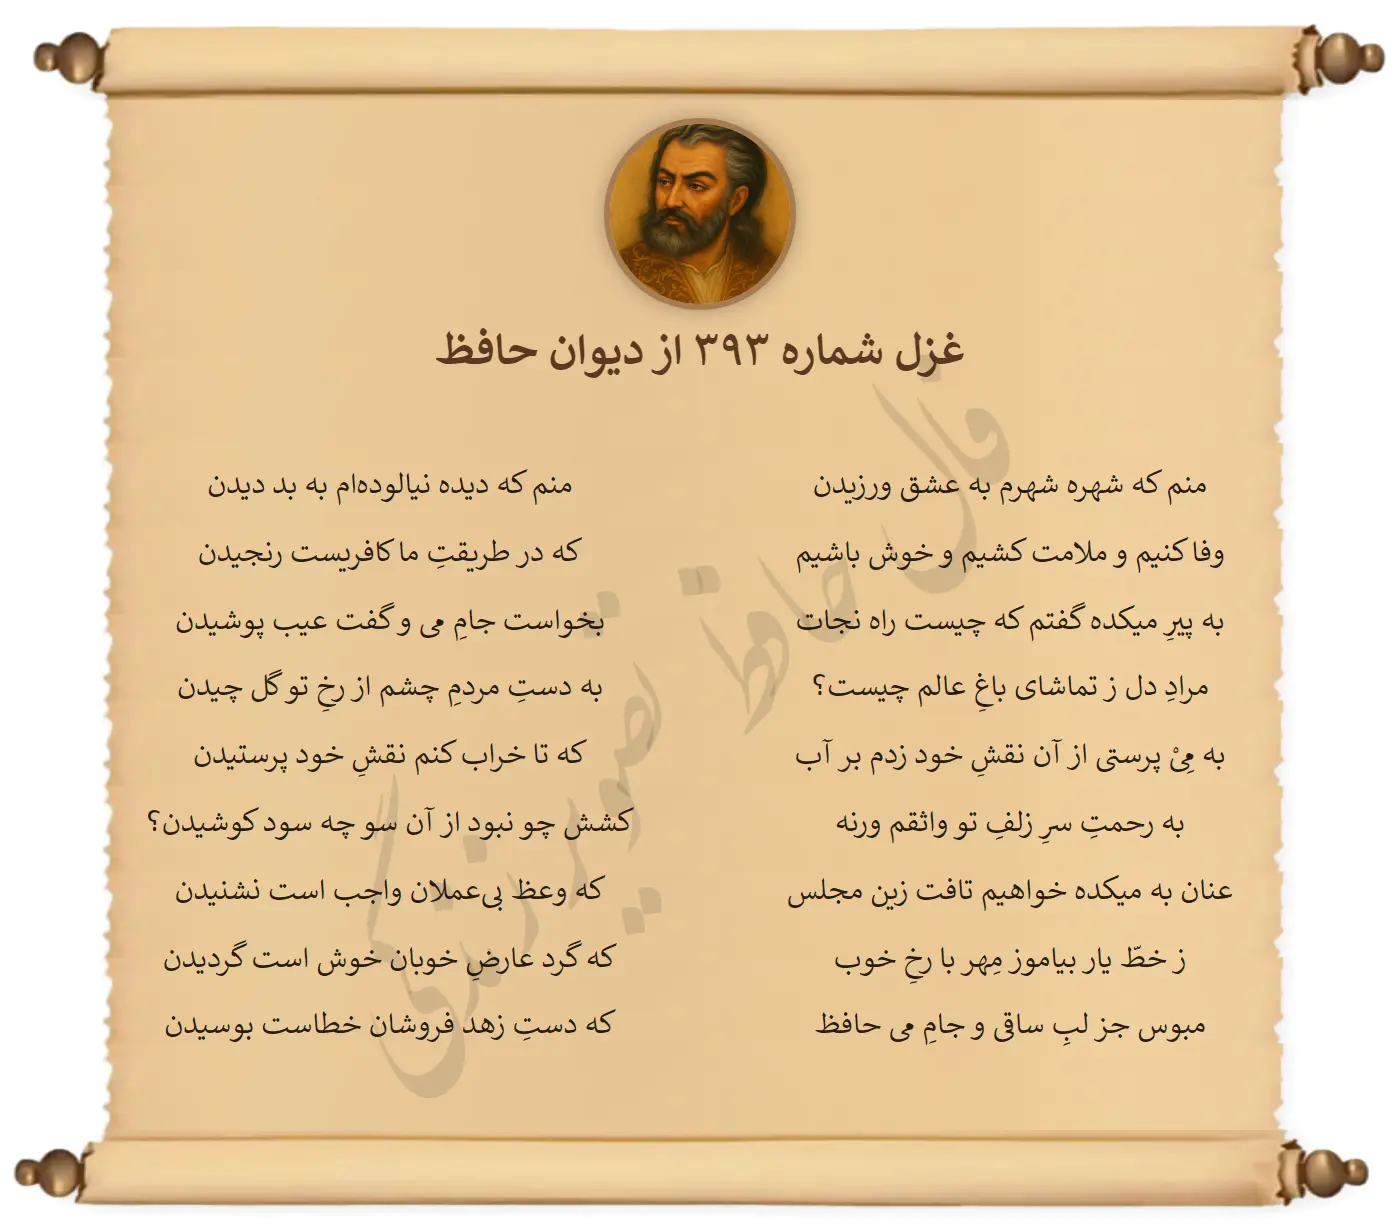 غزل شماره ۳۹۳ از دیوان حافظ
منم که شهره شهرم به عشق ورزیدن
منم که دیده نیالوده‌ام به بد دیدن
وفا کنیم و ملامت کشیم و خوش باشیم
که در طریقتِ ما کافریست رنجیدن
به پیرِ میکده گفتم که چیست راه نجات
بخواست جامِ می و گفت عیب پوشیدن
مرادِ دل ز تماشای باغِ عالم چیست؟
به دستِ مردمِ چشم از رخِ تو گل چیدن
به مِیْ پرستی از آن نقشِ خود زدم بر آب
که تا خراب کنم نقشِ خود پرستیدن
به رحمتِ سرِ زلفِ تو واثقم ورنه
کشش چو نبود از آن سو چه سود کوشیدن؟
عنان به میکده خواهیم تافت زین مجلس
که وعظ بی‌عملان واجب است نشنیدن
ز خطّ یار بیاموز مِهر با رخِ خوب
که گرد عارضِ خوبان خوش است گردیدن
مبوس جز لبِ ساقی و جامِ می حافظ
که دستِ زهد فروشان خطاست بوسیدن
فال حافظ تصویر زندگی